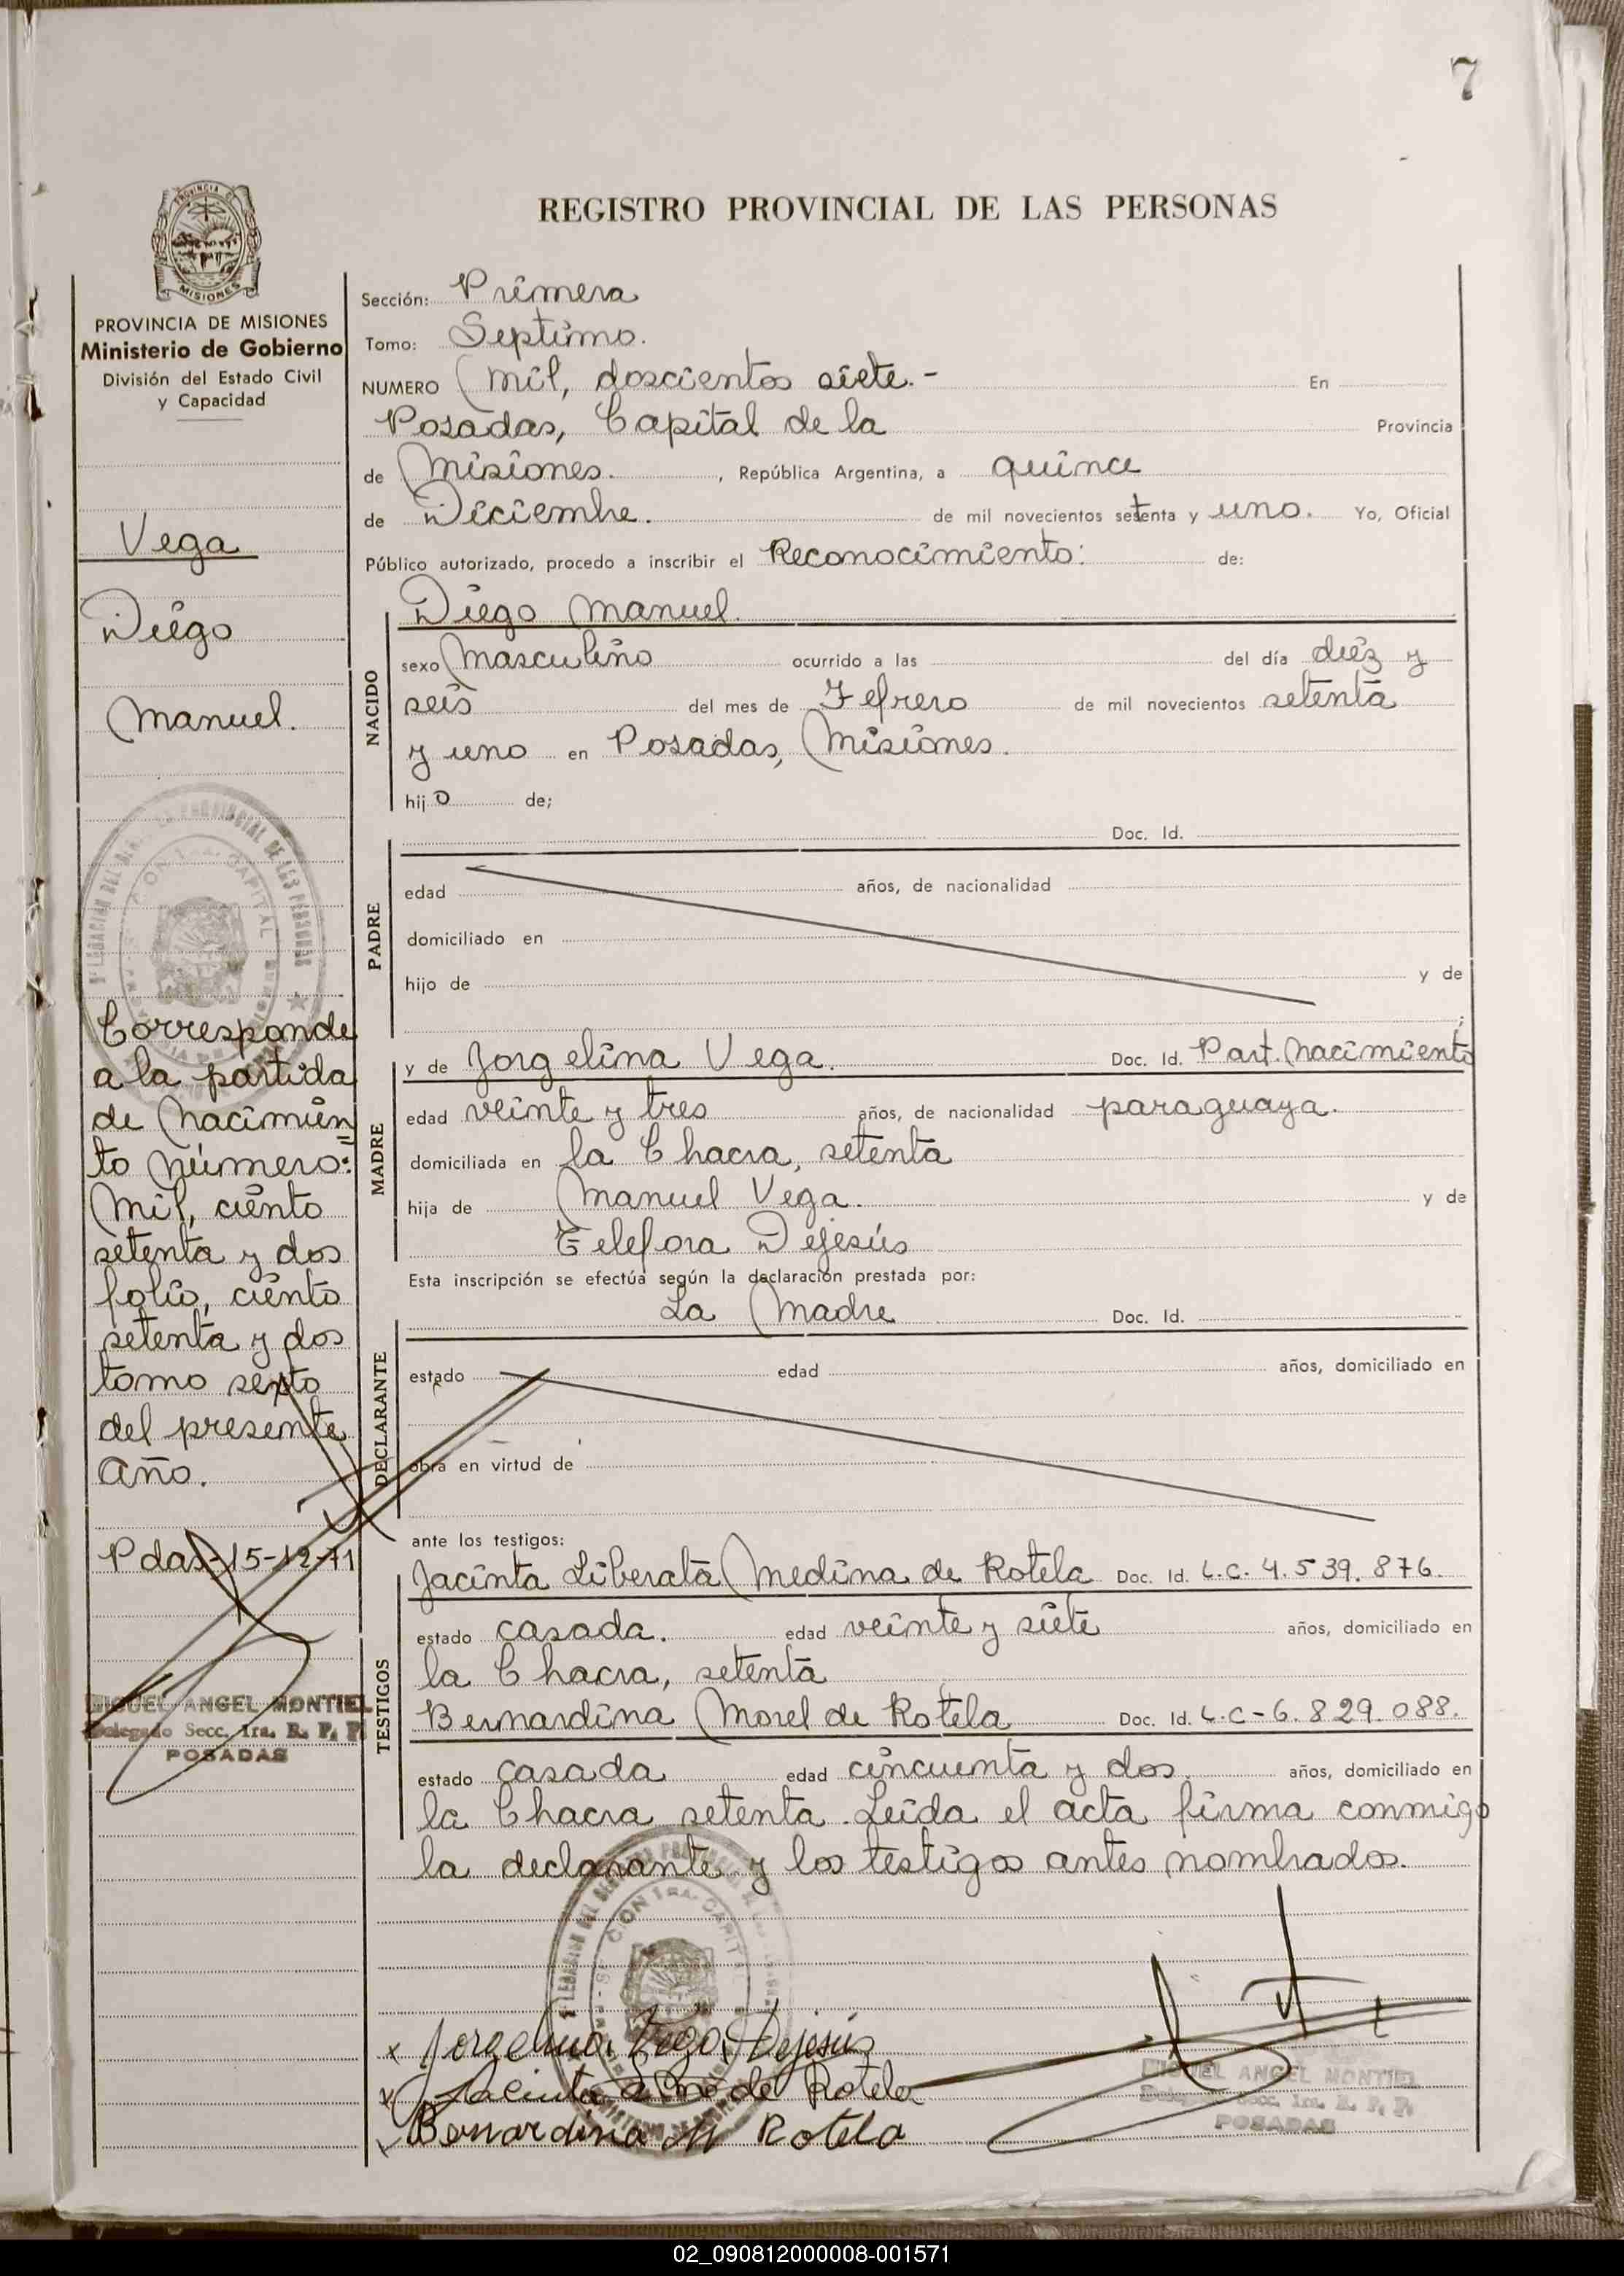 7
REGISTRO PROVINCIAL DE LAS PERSONAS
MISIONES
PROVINCIA DE MISIONES
Ministerio de Gobierno
División del Estado Civil
y Capacidad
Vega
Diego
Manuel.
Corresponde
a la partida
de Nacimien
to Número:
Mil, ciento
setenta y dos
folio, ciento
setenta y dos
tomo sexto
del presente
Año.
Pdas-15-12-71
MIGUEL ANGEL MONTIEL
Delegado Secc. 1ra. R. P. P.
POSADAS
Sección: Primera
Tomo: Septimo.
NUMERO Mil, doscientos siete.- En
Posadas, Capital de la Provincia
de Misiones. , República Argentina, a quince
de Diciembre. de mil novecientos setenta y uno. Yo, Oficial
Público autorizado, procedo a inscribir el Reconocimiento: de:
NACIDO
Diego Manuel.
sexo Masculino ocurrido a las del día diez y
seis del mes de Febrero de mil novecientos setenta
y uno en Posadas, Misiones.
hijo de;
Doc. Id.
PADRE
edad años, de nacionalidad
domiciliado en
hijo de y de
;
MADRE
y de Jorgelina Vega. Doc. Id. Part. Nacimiento
edad veinte y tres años, de nacionalidad paraguaya.
domiciliada en la Chacra, setenta
hija de Manuel Vega. y de
Telefora Dejesús
Esta inscripción se efectúa según la declaración prestada por:
La Madre Doc. Id.
DECLARANTE
estado edad años, domiciliado en
obra en virtud de
ante los testigos:
TESTIGOS
Jacinta Liberata Medina de Rotela Doc. Id. L.C. 4.539.876.
estado casada. edad veinte y siete años, domiciliado en
la Chacra, setenta
Bernardina Morel de Rotela Doc. Id. L.C-6.829.088.
estado casada edad cincuenta y dos. años, domiciliado en
la Chacra setenta. Leida el acta firma conmigo
la declarante y los testigos antes nombrados.
x Jorgelina Vega Dejesús
x Jacinta L M de Rotela
x Bernardina M Rotela
MIGUEL ANGEL MONTIEL
Delegado Secc. 1ra. R. P. P.
POSADAS
02_090812000008-001571